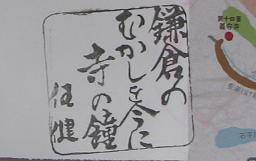 鎌倉の
むかしを今に
寺の鐘
伍健
第十四番